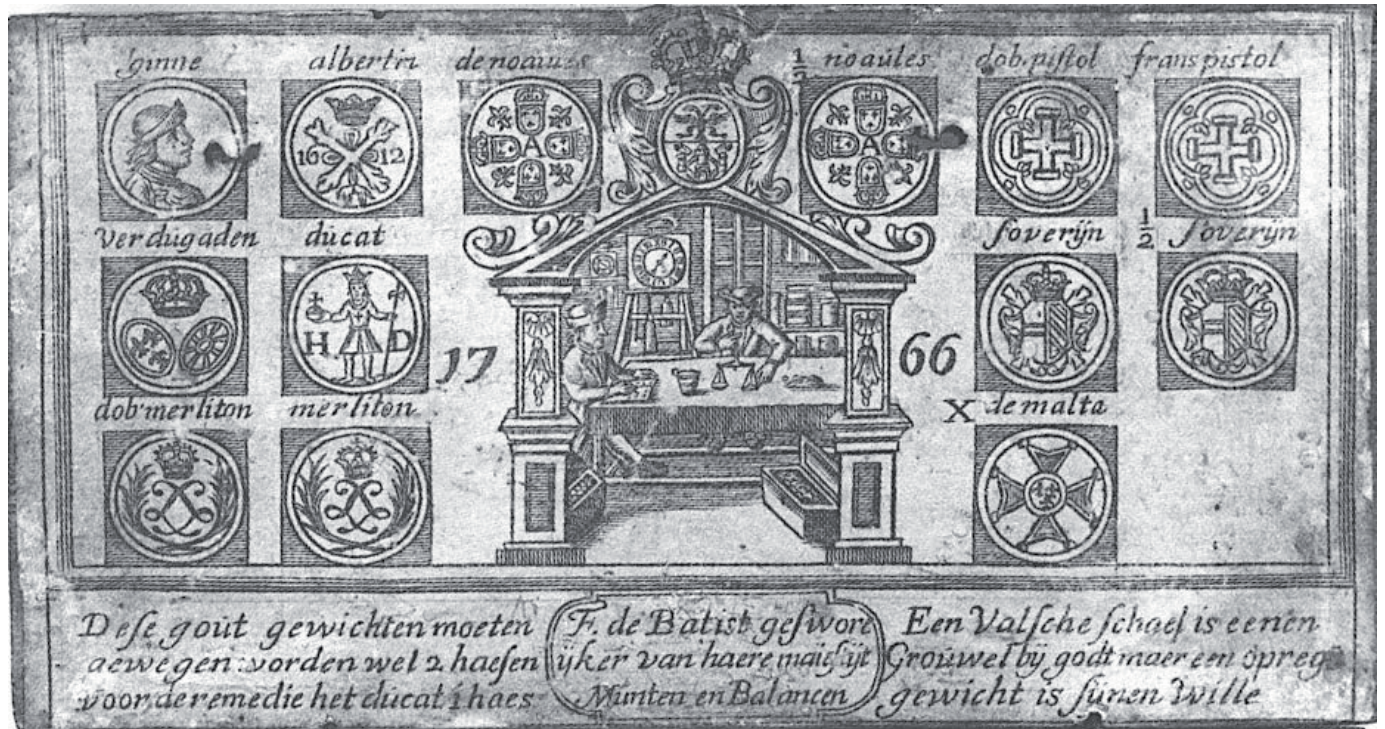 ginne albertri de noaules ½ noaúles dob. pistol frans pistol
16 12 A A
verdugaden ducat soverijn ½ soverijn
H D 17 66
dob merliton merliton X de malta
Dese goút gewichten moeten
gewegen worden wel 2 haesen
voor de remedie het dúcat 1 haes
F. de Batist geswore
ijker van haere maiestijt
Munten en Balancen
Een Valsche schael is eenen
Groúwel bij godt maer een opregt
gewicht is sijnen Wille